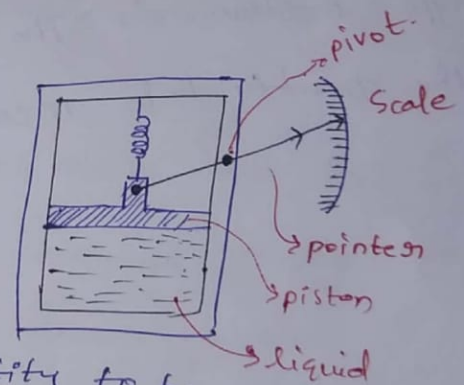 pivot.
Scale
pointer
piston
liquid